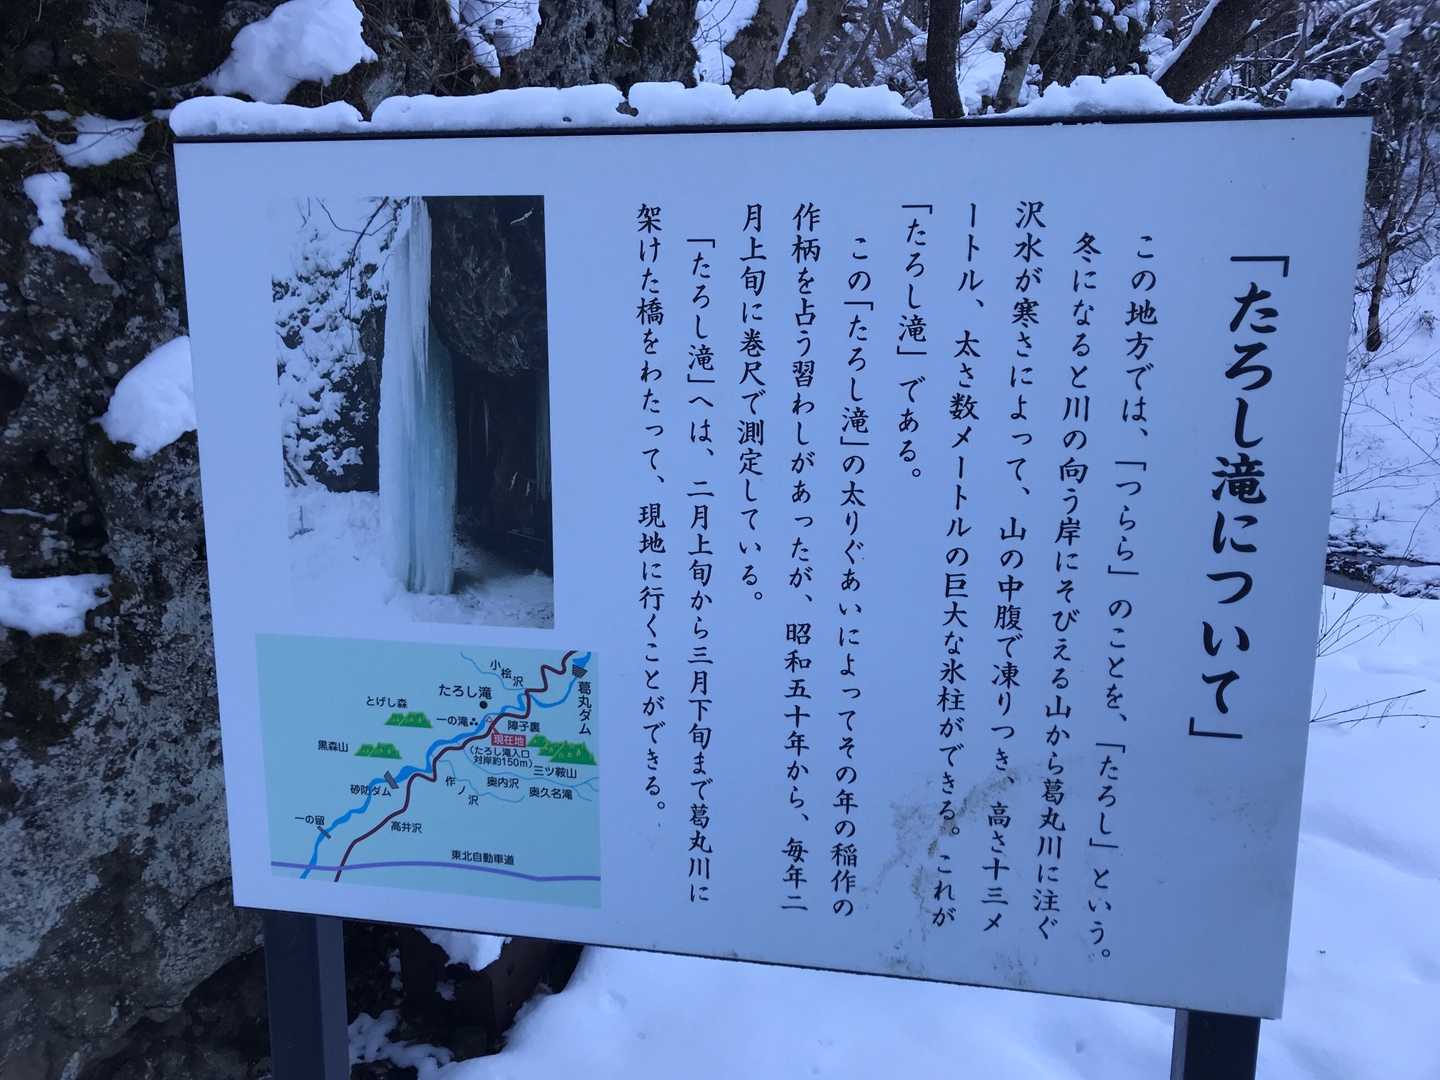 「たろし滝について」
この地方では、「つらら」のことを、「たろし」という。
冬になると川の向う岸にそびえる山から葛丸川に注ぐ
沢水が寒さによって、山の中腹で凍りつき、高さ十三メ
ートル、太さ数メートルの巨大な氷柱ができる。これが
「たろし滝」である。
この「たろし滝」の太りぐあいによってその年の稲作の
作柄を占う習わしがあったが、昭和五十年から、毎年二
月上旬に巻尺で測定している。
「たろし滝」へは、二月上旬から三月下旬まで葛丸川に
架けた橋をわたって、現地に行くことができる。
小桧沢
葛丸ダム
たろし滝
とげし森
一の滝
障子裏
現在地
(たろし滝入口
対岸約150m)
黒森山
三ツ鞍山
奥内沢
奥久名滝
作ノ沢
砂防ダム
一の留
高井沢
東北自動車道